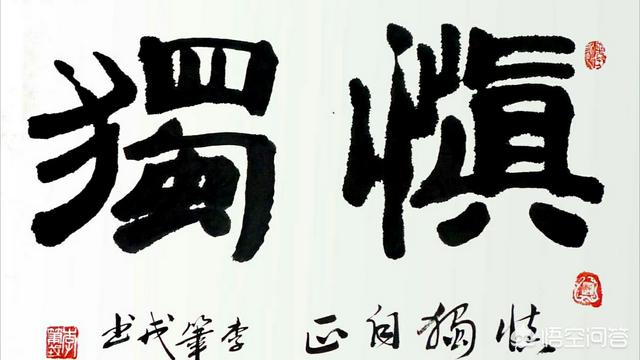 慎獨
慎獨自正 李筆戎书
悟空问答